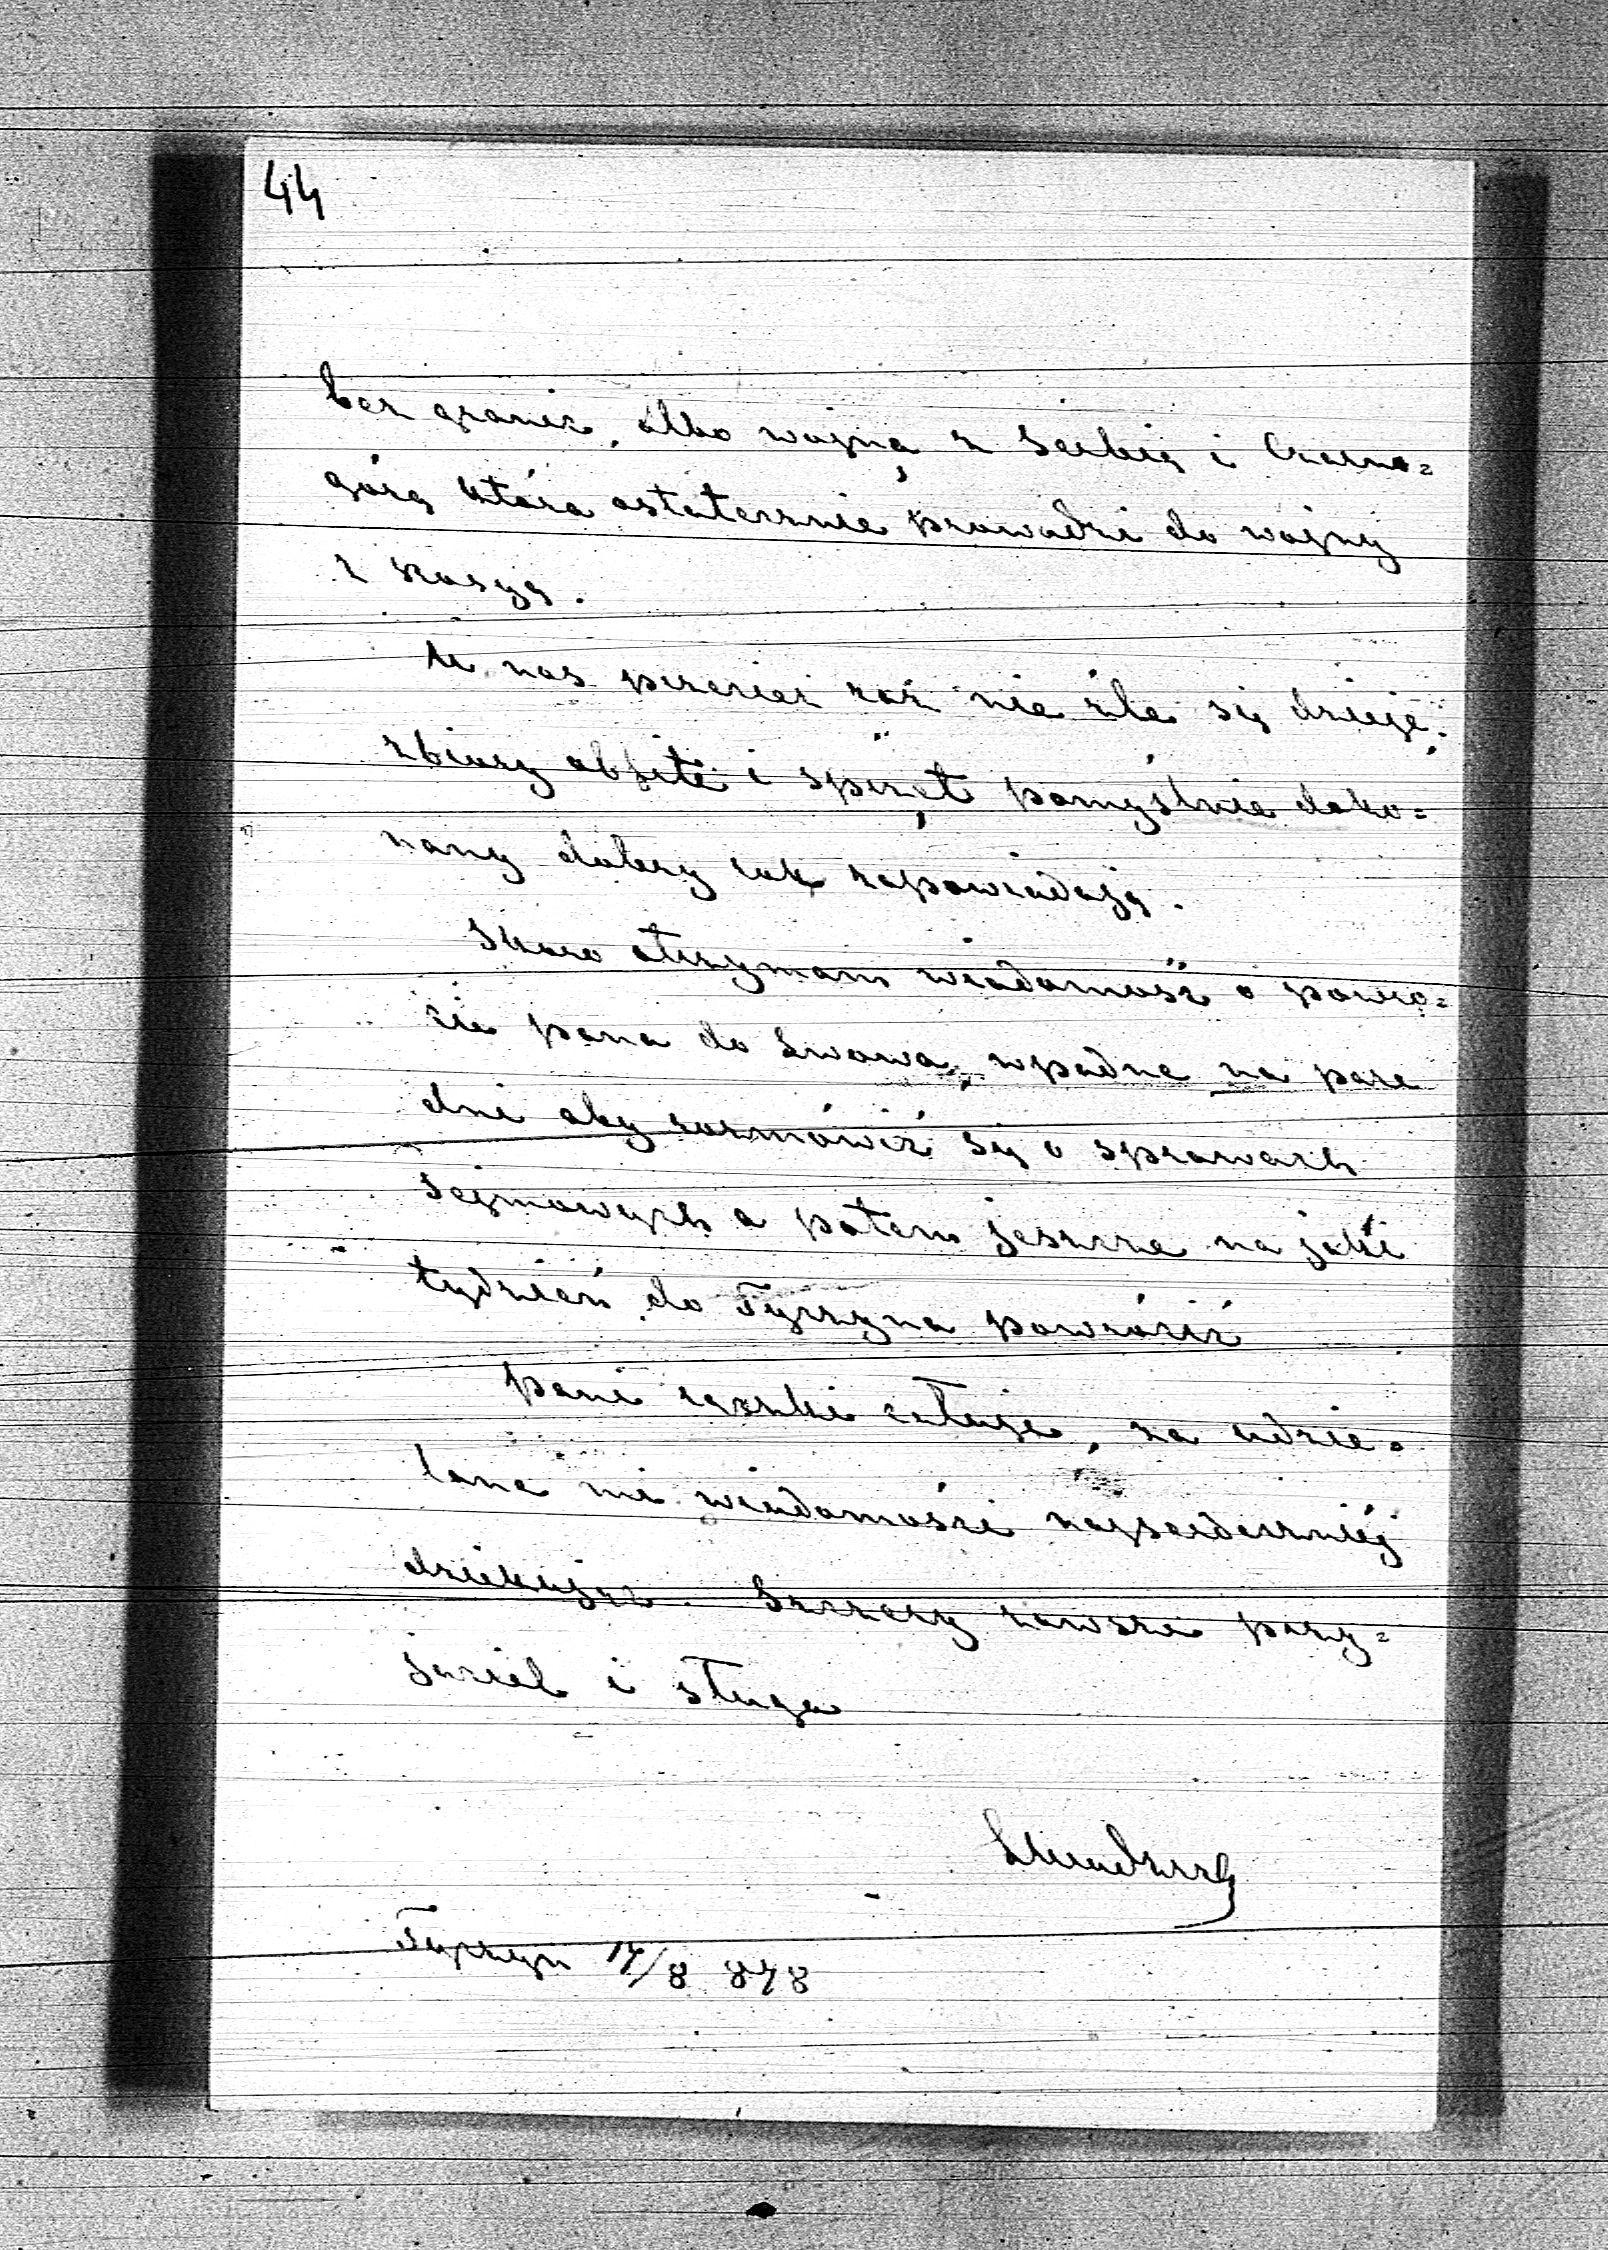 44
bez granic, albo wojną z Serbią i Czarno=
górą która ostatecznie prowadzi do wojny
z Rosyą.
U nas przecież raz nie źle się dzieje;
zbiory obfite i sprzęt pomyślnie doko=
nany dobry rok zapowiadają.
Skoro otrzymam wiadomość o powro=
cie pana do Lwowa, wpadnę na parę
dni aby rozmówić się o sprawach
sejmowych a potem jeszcze na jaki
tydzień do Tyczyna powrócić
Pani rączki całuję, za udzie=
lone mi wiadomości najserdeczniej
dziękując. Szczery zawsze przy=
jaciel i sługa
Tyczyn 17/8 878